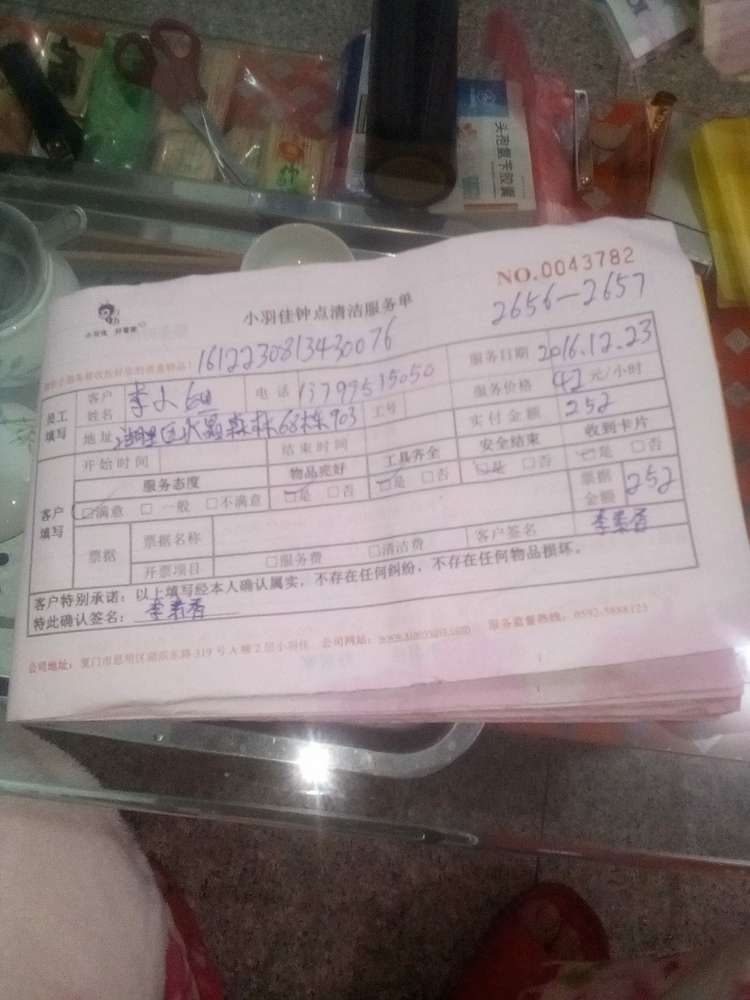 头孢克
胶囊
NO.0043782
小羽佳钟点清洁服务单
2656-2657
小羽佳 好管家
1612230813430076
员工填写 客户姓名 李小姐 电话 13799515050 服务日期 2016.12.23
地址 湖里区水晶森林68栋903 工号 服务价格 42元/小时
开始时间 结束时间 实付金额 252
客户填写 服务态度 物品完好 工具齐全 安全结束 收到卡片
☑满意 □一般 □不满意 ☑是 □否 ☑是 □否 ☑是 □否 ☑是 □否
票据 票据名称 票据金额 252
开票项目 □服务费 □清洁费 客户签名
客户特别承诺：以上填写经本人确认属实，不存在任何纠纷，不存在任何物品损坏。
特此确认签名：
公司地址：厦门市思明区湖滨东路319号A栋2层小羽佳 公司网站： 服务监督热线：0592-5888123